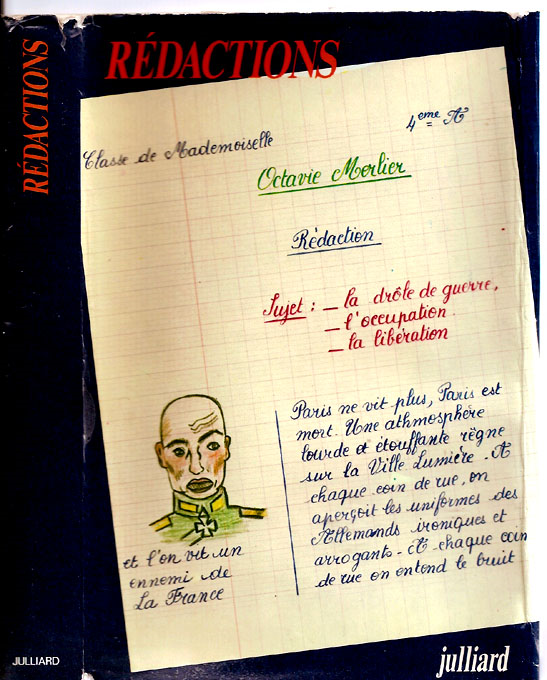 RÉDACTIONS
JULLIARD
RÉDACTIONS
4eme A
Classe de Mademoiselle
Octavie Morlier
Rédaction
Sujet : – la drôle de guerre,
– l'occupation
– la libération
Paris ne vit plus, Paris est
mort. Une athmosphère
lourde et étouffante règne
sur la Ville Lumière. A
chaque coin de rue, on
aperçoit les uniformes des
Allemands ironiques et
arrogants - A chaque coin
de rue on entend le bruit
et l'on vit un
ennemi de
La France
julliard